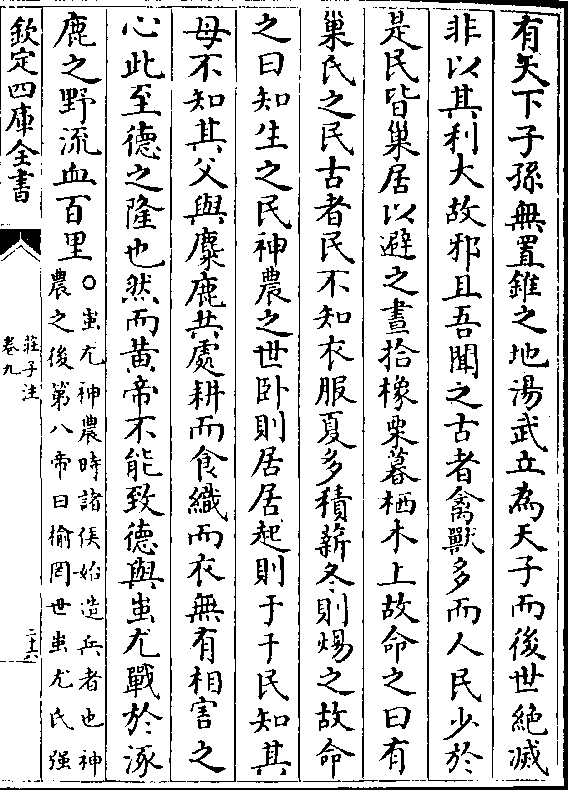 有天下子孫無置錐之地湯武立為天子而後世絶滅
非以其利大故邪且吾聞之古者禽獸多而人民少於
是民皆巢居以避之晝拾橡栗暮栖木上故命之曰有
巢氏之民古者民不知衣服夏多積薪冬則煬之故命
之曰知生之民神農之世卧則居居起則于于民知其
母不知其父與麋鹿共處耕而食織而衣無有相害之
心此至德之隆也然而黄帝不能致德與蚩尤戰於涿
鹿之野流血百里○蚩尤神農時諸侯始造兵者也神
農之後第八帝曰榆罔世蚩尤氏强
欽定四庫全書
莊子注
卷九
二十六